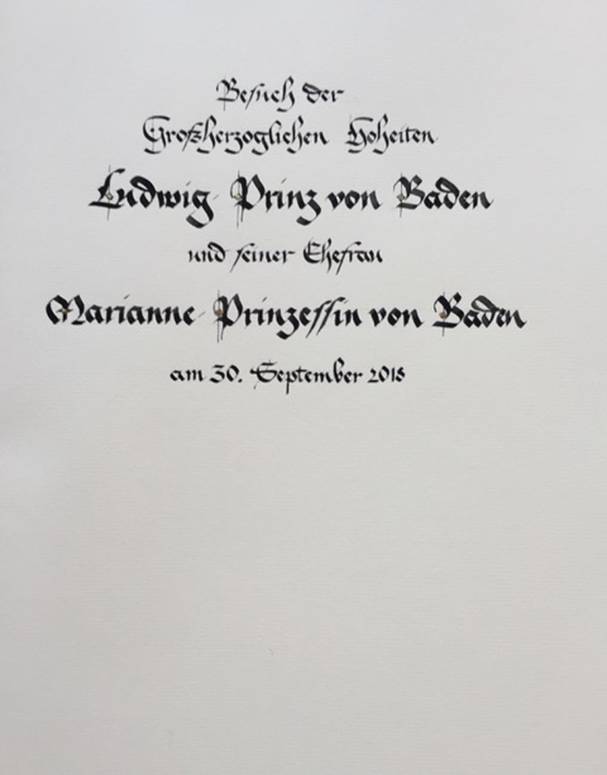 Besuch der
Großherzoglichen Hoheiten
Ludwig Prinz von Baden
und seiner Ehefrau
Marianne Prinzessin von Baden
am 30. September 2018